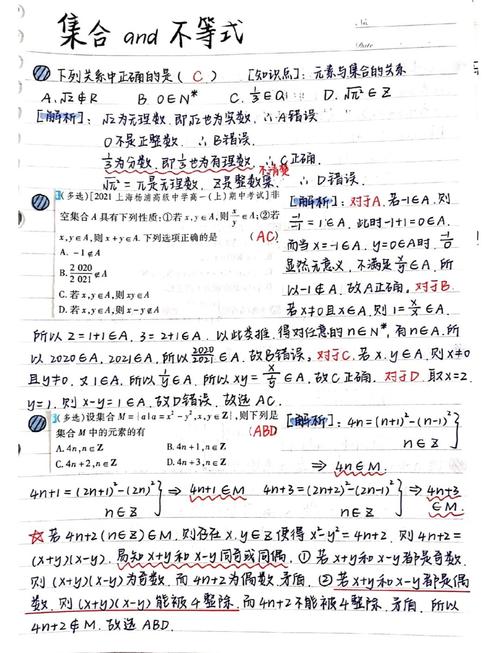 No.
Date
集合 and 不等式
下列关系中正确的是( C ) [知识点]: 元素与集合的关系
A. √2∉R B. 0∈N* C. 1/3∈Q D. √π²∈Z
[解析]: √2为无理数,即√2也为实数,∴A错误
0不是正整数,∴B错误.
1/3为分数,即1/3也为有理数,∴C正确.
不清楚
√π²=π是无理数,Z是整数集,∴D错误.
(多选)[2021 上海杨浦高级中学高一(上)期中考试]非
空集合 A 具有下列性质:①若 x,y∈A,则x/y∈A;②若
x,y∈A,则 x+y∈A. 下列选项正确的是 (AC)
A. -1∉A
B. 2 020/2 021∉A
C. 若 x,y∈A,则 xy∈A
D. 若 x,y∈A,则 x-y∈A
[解析]: 对于A. 若-1∈A, 则
-1/-1=1∈A, 此时-1+1=0∈A.
而当x=-1∈A, y=0∈A时, -1/0
显然无意义, 不满足x/y∈A, 所
以-1∉A, 故A正确. 对于B.
若x≠0且x∈A, 则1=x/x∈A.
所以2=1+1∈A, 3=2+1∈A, 以此类推, 得对任意的n∈N*, 有n∈A, 所
以2020∈A, 2021∈A, 所以2020/2021∈A, 故B错误. 对于C. 若x,y∈A, 则x≠0
且y≠0, 又1∈A, 所以1/y∈A, 所以xy=x/(1/y)∈A, 故C正确. 对于D. 取x=2,
y=1, 则x-y=1∈A, 故D错误. 故选AC.
(多选)设集合 M={a|a=x²-y²,x,y∈Z},则下列是
集合 M 中的元素的有 (ABD)
A. 4n,n∈Z B. 4n+1,n∈Z
C. 4n+2,n∈Z D. 4n+3,n∈Z
[解析]: 4n=(n+1)²-(n-1)²}
n∈Z
⇒ 4n∈M.
4n+1=(2n+1)²-(2n)² } ⇒ 4n+1∈M 4n+3=(2n+2)²-(2n+1)² } ⇒ 4n+3
n∈Z n∈Z ∈M.
☆若4n+2(n∈Z)∈M, 则存在x,y∈Z使得x²-y²=4n+2, 则4n+2=
(x+y)(x-y), 易知x+y和x-y同奇或同偶, ①若x+y和x-y都是奇数,
则(x+y)(x-y)为奇数, 而4n+2为偶数, 矛盾. ②若x+y和x-y都是偶
数, 则(x+y)(x-y)能被4整除, 而4n+2不能被4整除, 矛盾, 所以
4n+2∉M. 故选ABD.